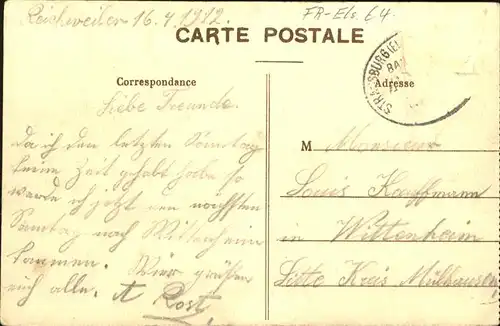 Reichweiler 16.4.1912.
FR-Els. 64.
CARTE POSTALE
STRASSBURG (EL
BA
Correspondance
Adresse
Liebe Freunde.
da ich den letzten Sonntag
keine Zeit gehabt habe so
werde ich jetzt den nächsten
Sonntag nach Wittenheim
kommen. Wier grüßen
eich alle. A Rost
M Monsieur
Louis Kauffmann
in Wittenheim
Sitte Kreis Mülhausen